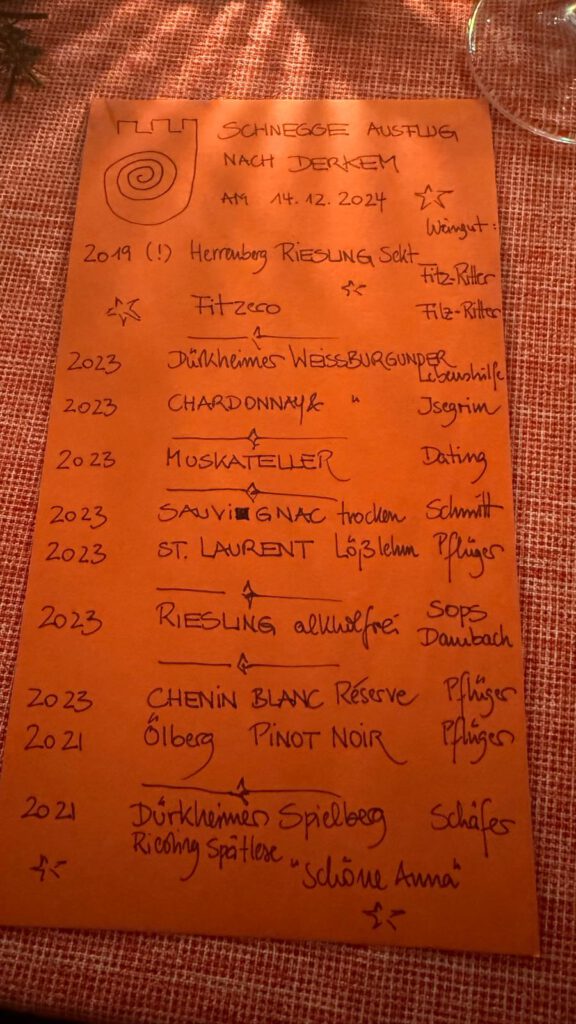 SCHNEGGE AUSFLUG
NACH DERKEM
AM 14.12.2024
Weingut:
2019 (!) Herrenberg RIESLING Sekt Fitz-Ritter
Fitzero Fitz-Ritter
2023 Dürkheimer WEISSBURGUNDER Lebenshilfe
2023 CHARDONNAY & " Isegrim
2023 MUSKATELLER Dating
2023 SAUVIGNAC trocken Schmitt
2023 ST. LAURENT Lößlehm Pflüger
2023 RIESLING alkholfrei Sops
Dambach
2023 CHENIN BLANC Réserve Pflüger
2021 Ölberg PINOT NOIR Pflüger
2021 Dürkheimer Spielberg Schäfer
Riesling Spätlese
"Schöne Anna"